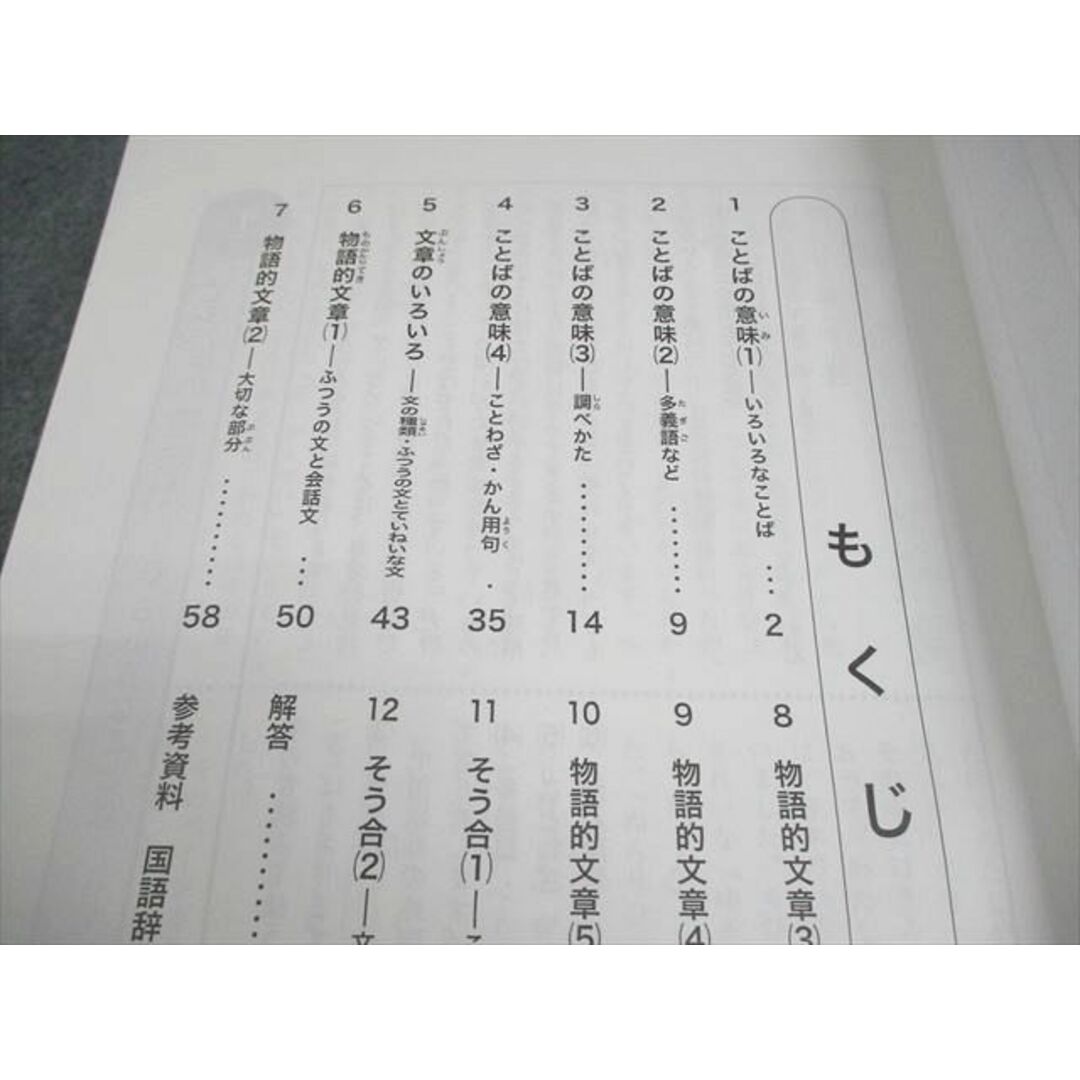 もくじ
1 ことばの意味(1)―いろいろなことば ・・・ 2
2 ことばの意味(2)―多義語など ・・・・・・・・ 9
3 ことばの意味(3)―調べかた ・・・・・・・・・・ 14
4 ことばの意味(4)―ことわざ・かん用句 ・ 35
5 文章のいろいろ―文の種類・ふつうの文とていねいな文 43
6 物語的文章(1)―ふつうの文と会話文 ・・・ 50
7 物語的文章(2)―大切な部分 ・・・・・・・・・・・ 58
8 物語的文章(3)
9 物語的文章(4)
10 物語的文章(5)
11 そう合(1)―
12 そう合(2)―文
解答 ・・・・・・・・・
参考資料 国語辞